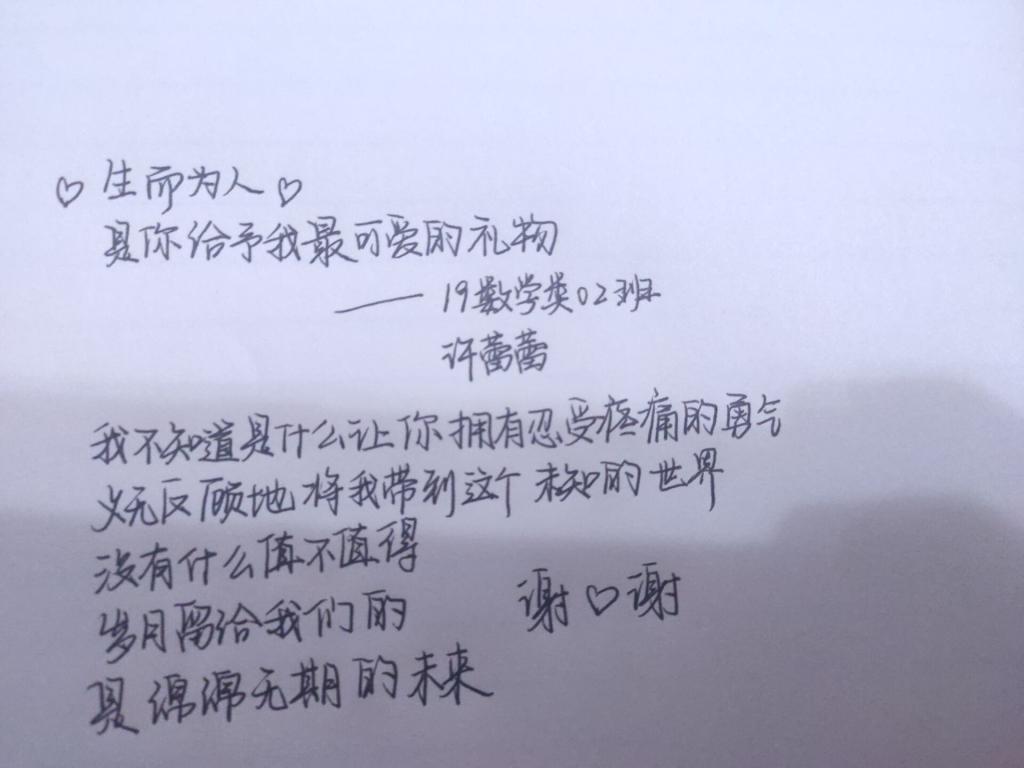 ♡ 生而为人 ♡
是你给予我最可爱的礼物
—— 19数学类02班
许蕾蕾
我不知道是什么让你拥有忍受疼痛的勇气
义无反顾地将我带到这个未知的世界
没有什么值不值得
岁月留给我们的
谢♡谢
是绵绵无期的未来